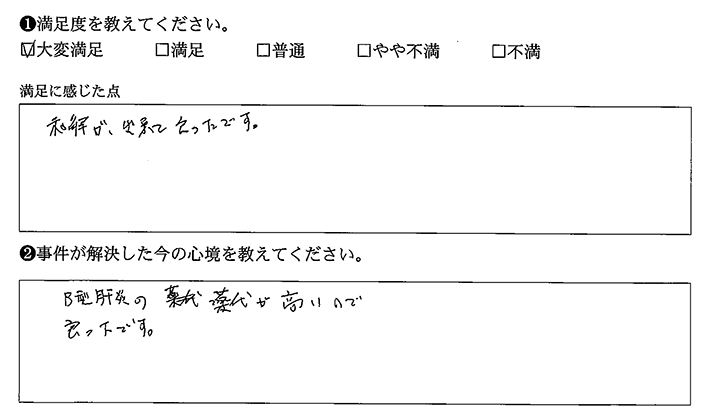 ❶満足度を教えてください。
☑大変満足 □満足 □普通 □やや不満 □不満
満足に感じた点
和解が、出来て良ったです。
❷事件が解決した今の心境を教えてください。
B型肝炎の 薬代 薬代が高いので
良ったです。